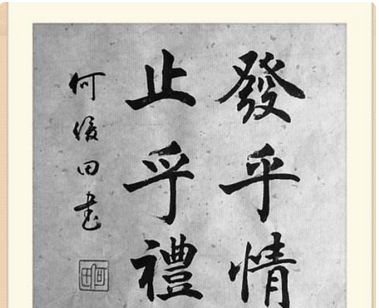 發乎情
止乎禮
何後田書